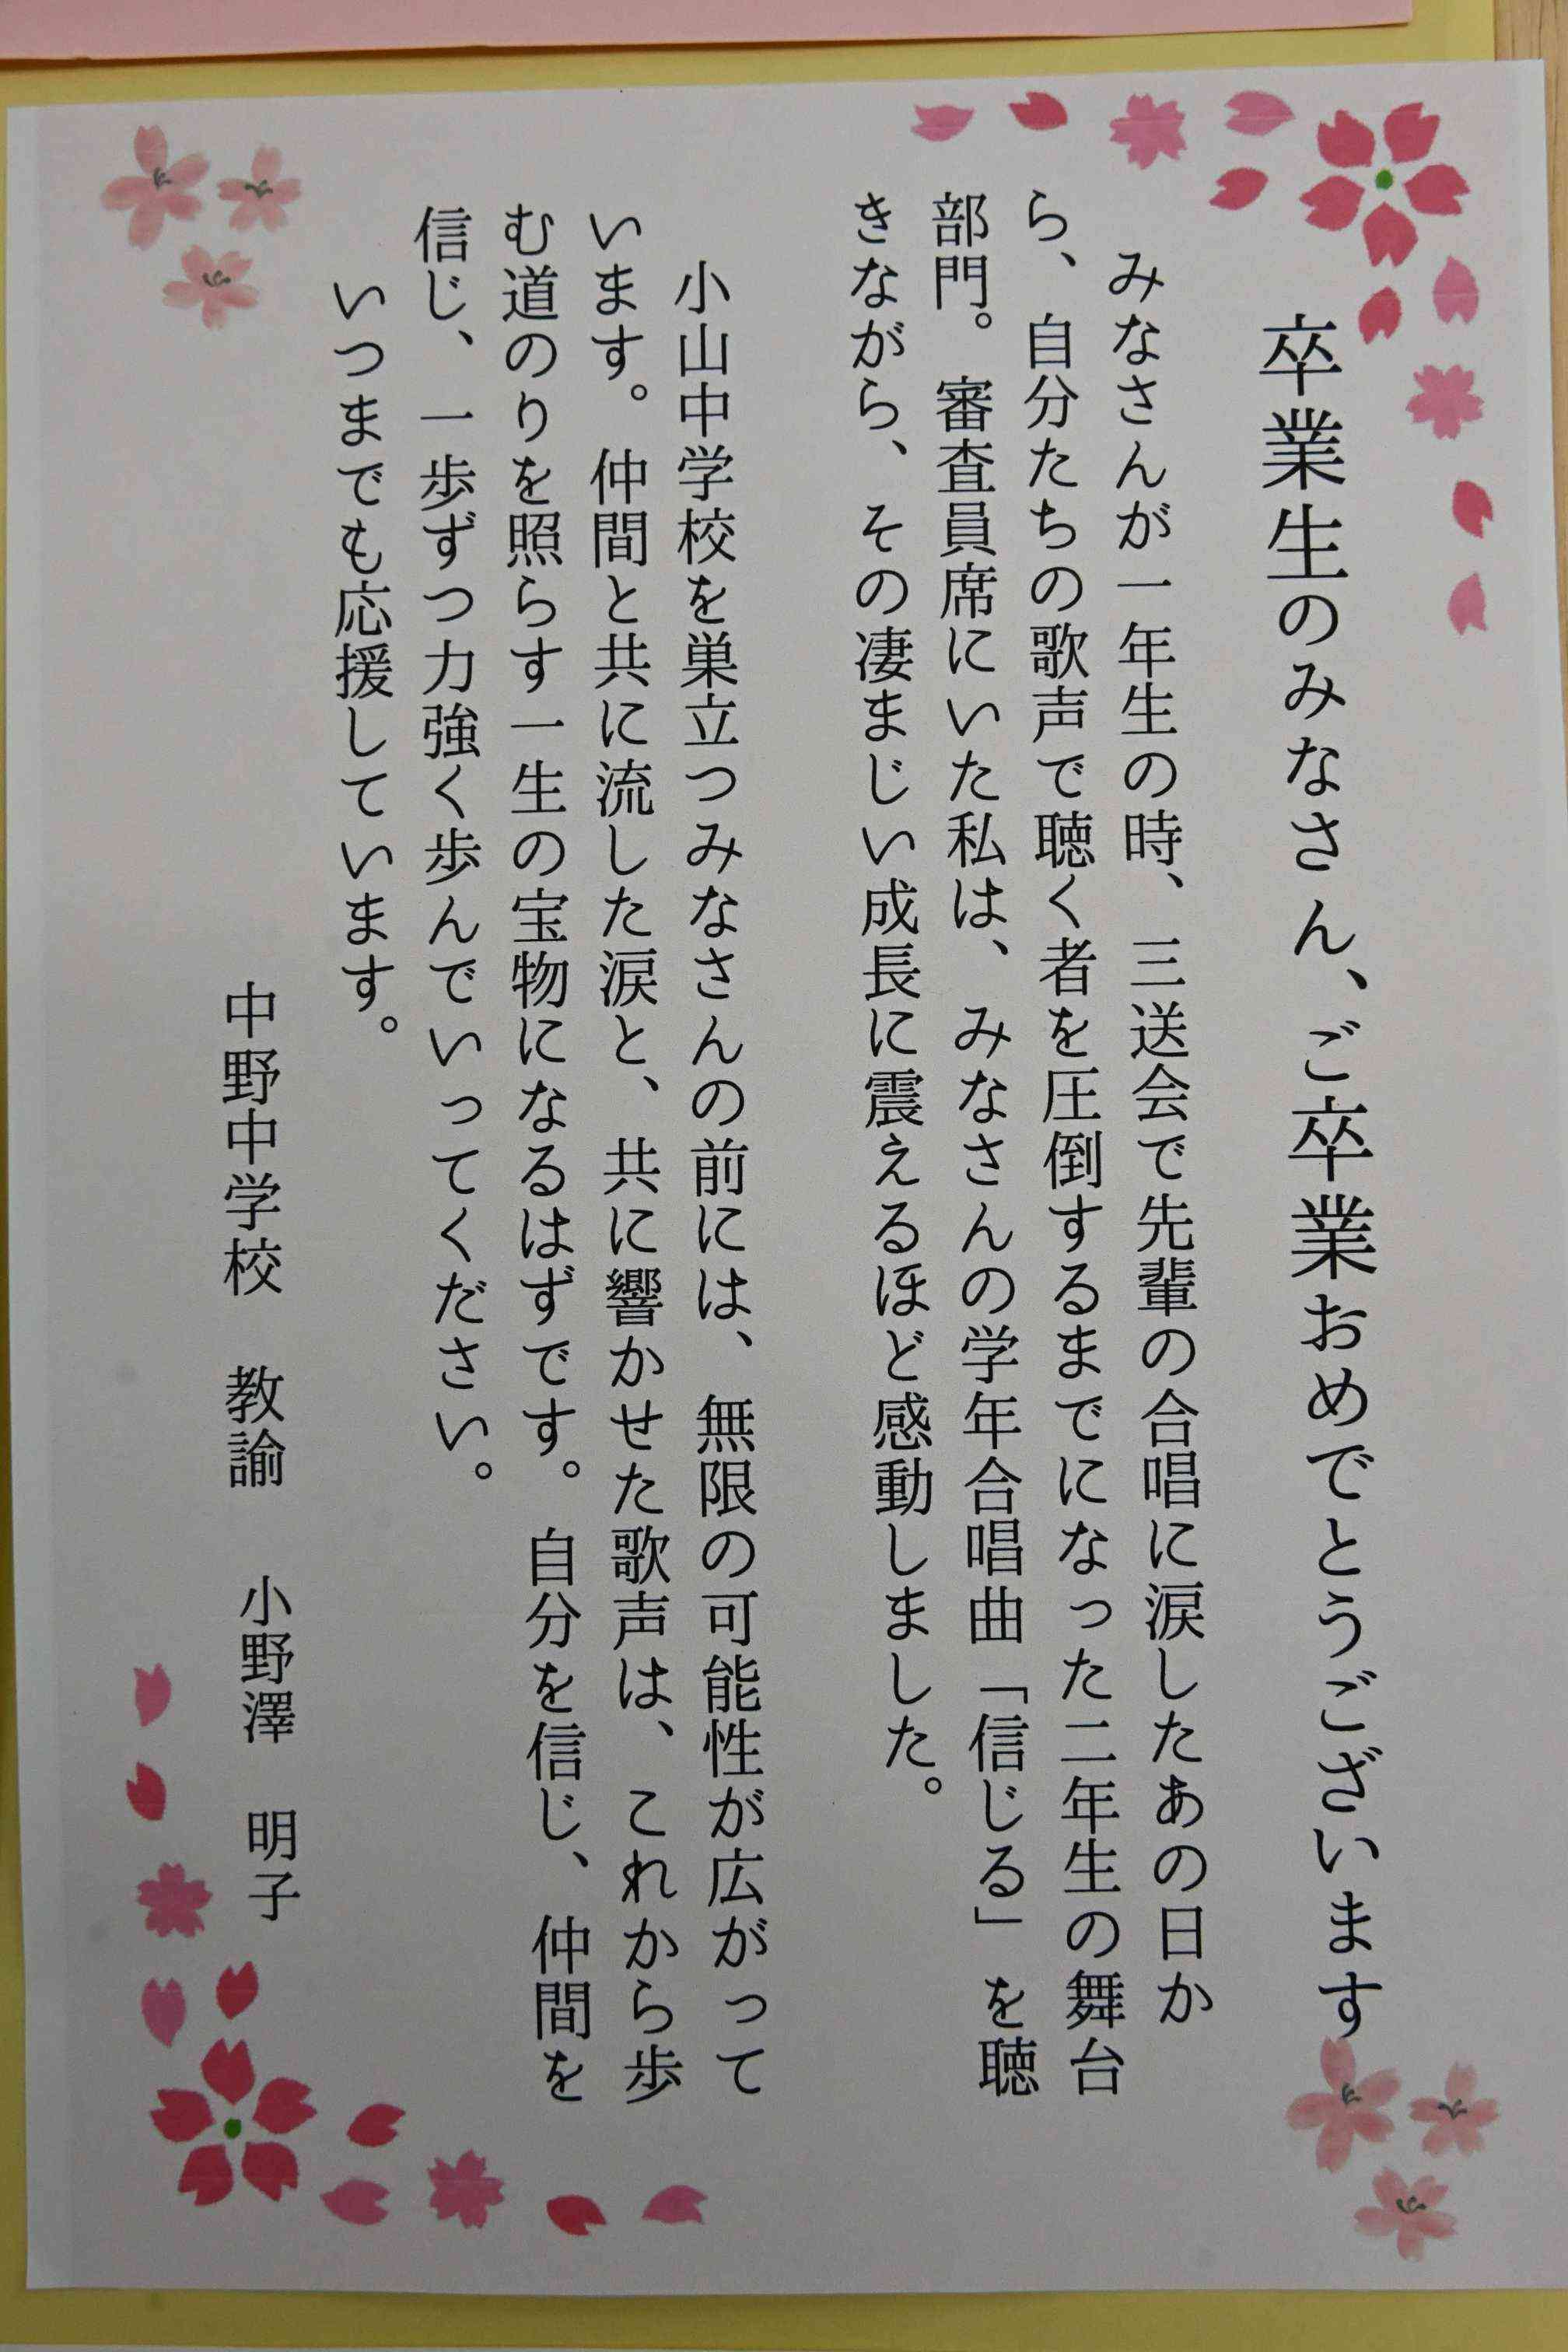 卒業生のみなさん、ご卒業おめでとうございます
みなさんが一年生の時、三送会で先輩の合唱に涙したあの日か
ら、自分たちの歌声で聴く者を圧倒するまでになった二年生の舞台
部門。審査員席にいた私は、みなさんの学年合唱曲「信じる」を聴
きながら、その凄まじい成長に震えるほど感動しました。
小山中学校を巣立つみなさんの前には、無限の可能性が広がって
います。仲間と共に流した涙と、共に響かせた歌声は、これから歩
む道のりを照らす一生の宝物になるはずです。自分を信じ、仲間を
信じ、一歩ずつ力強く歩んでいってください。
いつまでも応援しています。
中野中学校 教諭 小野澤 明子